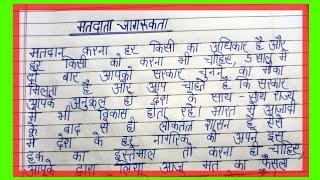 मतदाता जागरुकता
मतदान करना हर किसी का अधिकार है और
हर किसी को करना भी चाहिए, 5 साल में
दो बार आपको सरकार चुनने का मौका
मिलता है और आप चाहते है कि सरकार
आपके अनुकूल हो देश के साथ साथ राज्य
में भी विकास होता रहे। भारत में आजादी
के बाद से ही लोकतंत्र शासन है इस
में देश के हर नागरिक को अपने इस
हक का इस्तेमाल तो करना ही चाहिए,
आपके द्वारा लिया आज मत का फैसला